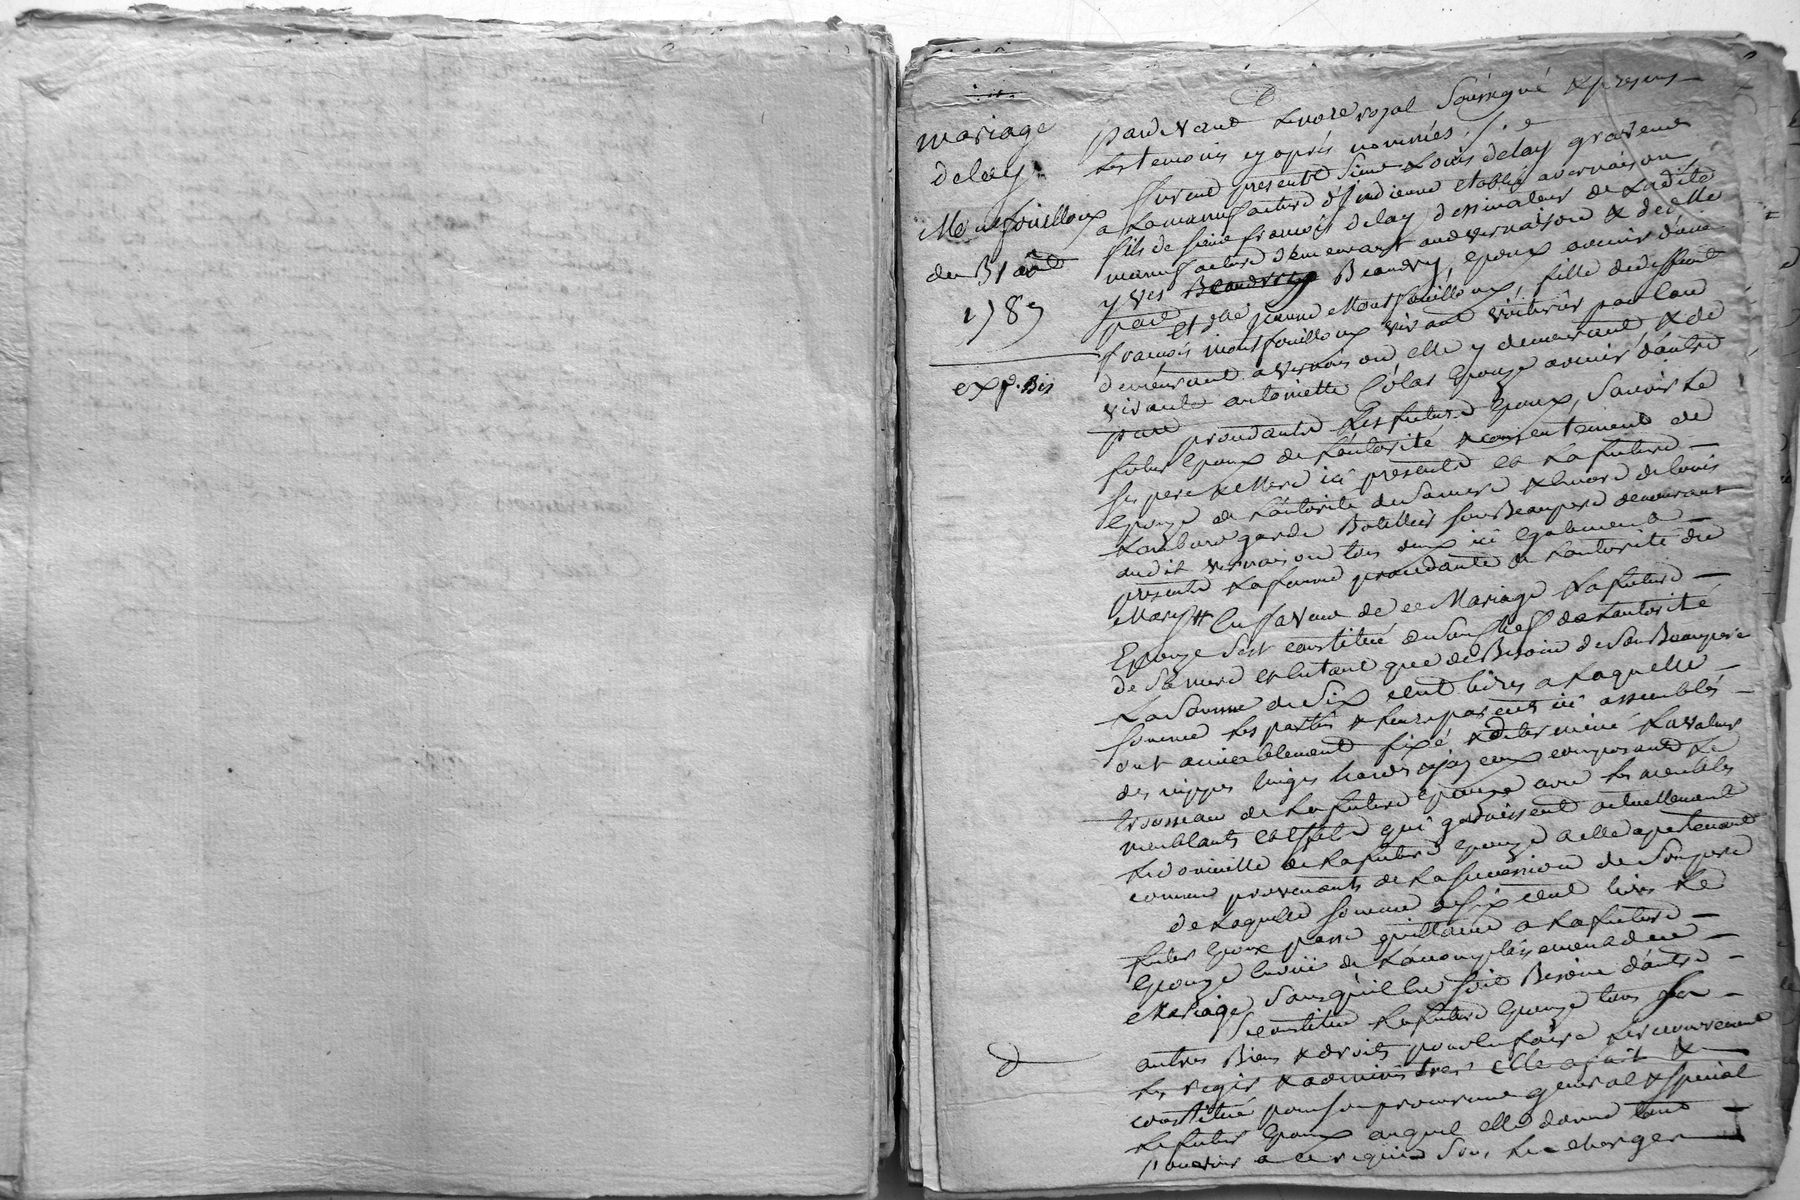 mariage
delay
Montfouilloux
du 31 aoust
1787
exp. bis
pardevant le no.re royal soussigné & presens
les temoins cy après nommés
furent presents sieur Louis delay graveur
a la manufacture d'indienne etablie a vernaison
fils de sieur françois delay dessinateur de ladite
manufacture demeurant audit vernaison & de dlle
yves Beaudry, epoux avenir d'une
part
et dlle jeanne Montfouilloux, fille de deffunt
françois montfouilloux vivant voiturier par eau
demeurant a vernaison ou elle y demeurant, & de
vivante antoinette Colas Epouze avenir d'autre
part
procedants les futurs Epoux, savoir le
futur Epoux de l'autorité & consentement de
ses pere & Mere ici presents et la future
Epouze de l'autorité de sa mere & encore de louis
garde Batelier son Beaupere demeurant
audit vernaison tous deux ici egalement
presents la femme procedante de l'autorité du
Mary // En faveur de ce Mariage la future
Epouze s'est constitué de son chef de l'autorité
de sa mere et en tant que de Besoin de son Beaupere
la somme de six cent livres a laquelle
somme les parties & leurs parents ici assemblés
ont amiablement fixé & determiné la valeur
des nippes linges hardes & joyeaux composants le
trousseau de la future epouze avec les meubles
meublants et effets qui garnissent actuellement
le domicille de la future Epouze a elle apartenant
comme provenants de la succession de son pere
de laquelle somme de six cent livres le
futur Epoux passe quittance a la future
Epouze en vüe de l'accomplissement de ce
Mariage sans qu'il en soit Besoin d'autre
Se constitue la future Epouze tous ses
autres Biens & droits pour en faire le recouvrement
les regir & administrer elle a fait &
constitué pour son procureur general & special
le futur Epoux auquel elle donne tout
pouvoir a ce requis sous la charge